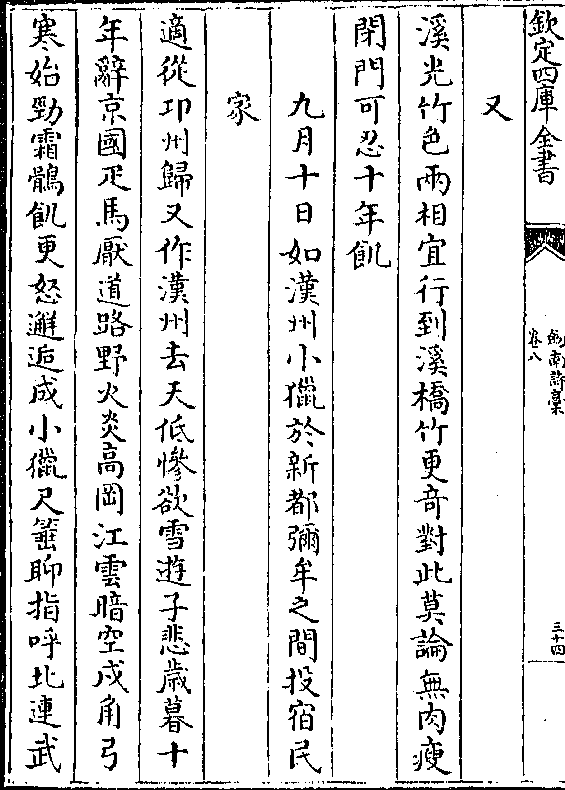 欽定四庫全書
劍南詩稾
卷八
三十四
又
溪光竹色兩相宜行到溪橋竹更奇對此莫論無肉瘦
閉門可忍十年飢
九月十日如漢州小獵於新都彌牟之間投宿民
家
適從卭州歸又作漢州去天低慘欲雪遊子悲歲暮十
年辭京國疋馬厭道路野火炎高岡江雲暗空戍角弓
寒始勁霜鶻飢更怒邂逅成小獵尺箠聊指呼北連武